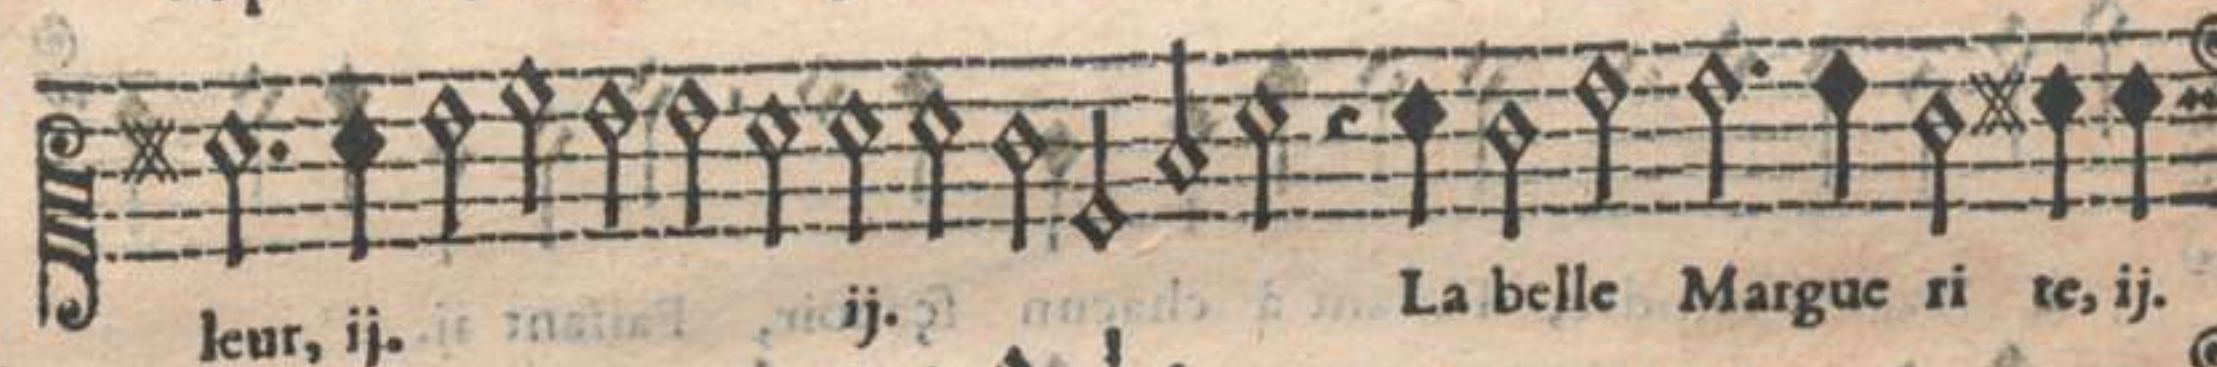 leur, ij. ij. La belle Margue ri te, ij.